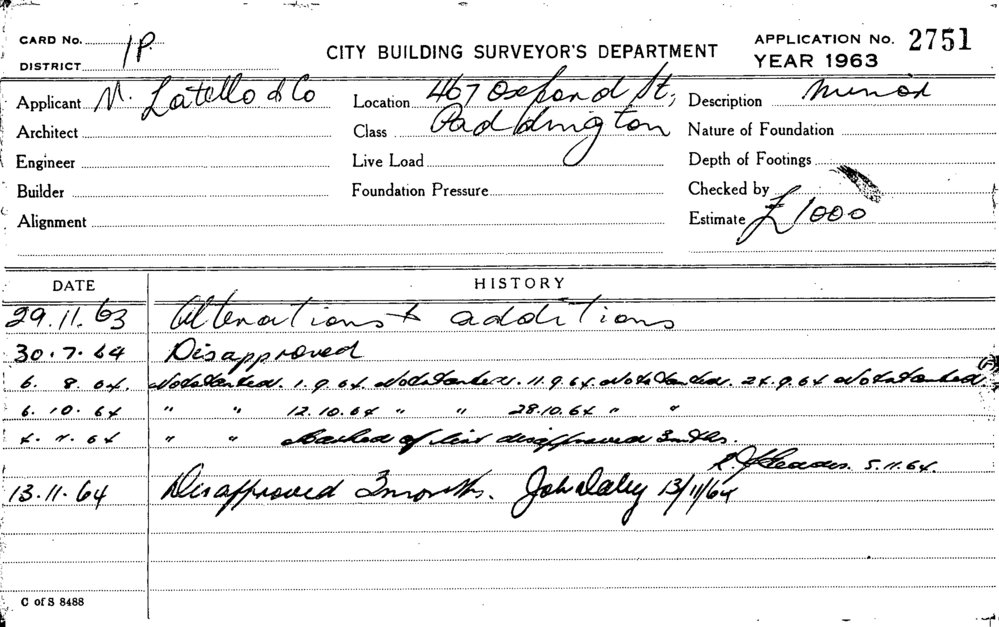 CARD No. 1P.
DISTRICT
CITY BUILDING SURVEYOR'S DEPARTMENT
APPLICATION No. 2751
YEAR 1963
Applicant M. Latello & Co
Location 467 Oxford St,
Description Minor
Architect
Class Paddington
Nature of Foundation
Engineer
Live Load
Depth of Footings
Builder
Foundation Pressure
Checked by
Alignment
Estimate £1000
DATE HISTORY
29.11.63 Alterations & additions
30.7.64 Disapproved
6. 8. 64. Not started. 1.9.64 Not started. 11.9.64 Not started. 24.9.64 Not started.
6. 10. 64 " " 12.10.64 " " 28.10.64 " "
4. 11. 64 " " Marked off list disapproved 3 mths.
5.11.64
13.11.64 Disapproved 3 months. John Daley 13/11/64
C of S 8488